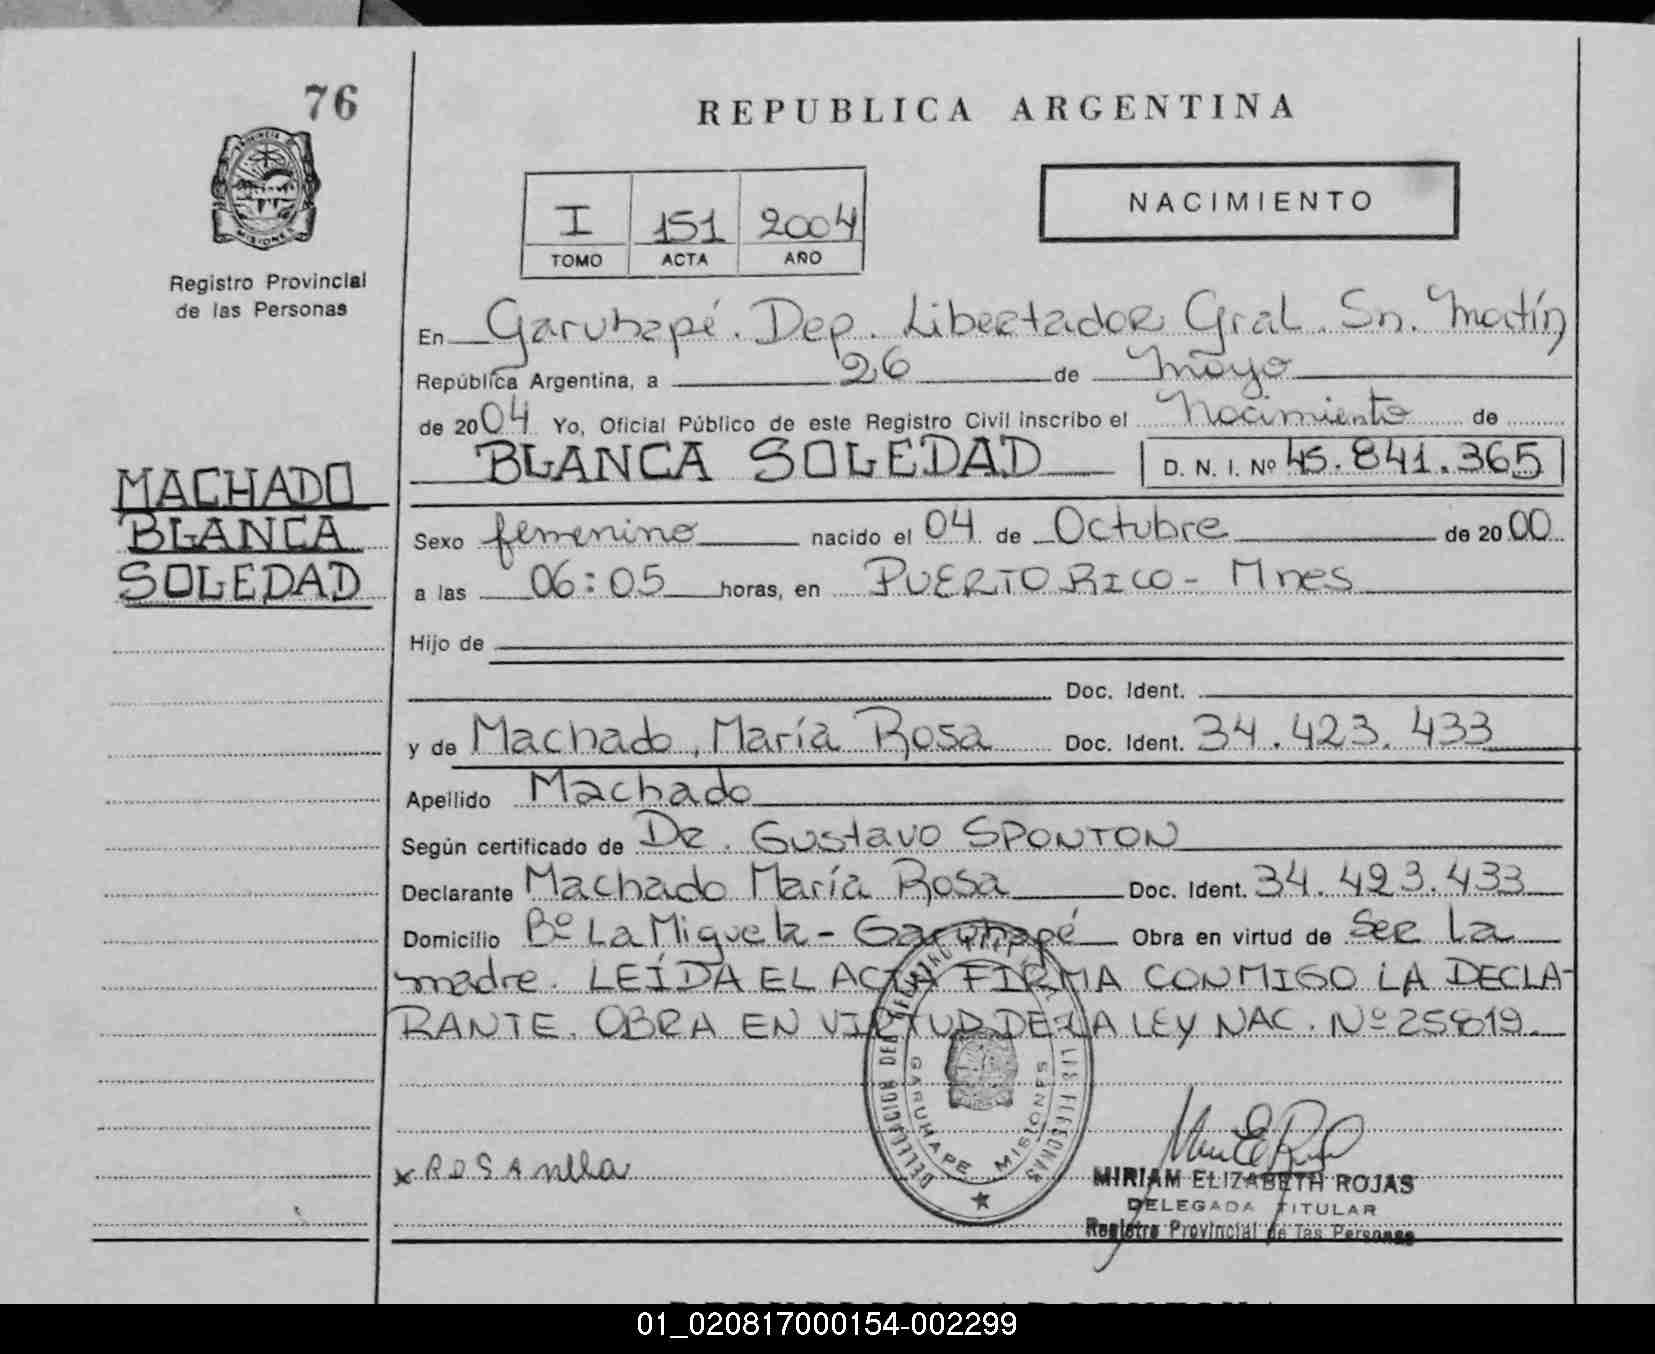 76
REPUBLICA ARGENTINA
PROVINCIA DE
MISIONES
Registro Provincial
de las Personas
I 151 2004
TOMO ACTA AÑO
NACIMIENTO
En Garuhapé. Dep. Libertador Gral. Sn. Martín
República Argentina, a 26 de mayo
de 2004 Yo, Oficial Público de este Registro Civil inscribo el Nacimiento de
BLANCA SOLEDAD D. N. I. Nº 45.841.365
MACHADO
BLANCA
SOLEDAD
Sexo femenino nacido el 04 de Octubre de 2000
a las 06:05 horas, en PUERTO RICO - Mnes
Hijo de
Doc. Ident.
y de Machado, María Rosa Doc. Ident. 34.423.433
Apellido Machado
Según certificado de DR. Gustavo SPONTON
Declarante Machado María Rosa Doc. Ident. 34.423.433
Domicilio Bº La Miguela - Garuhapé Obra en virtud de Ser La
madre. LEÍDA EL ACTA FIRMA CONMIGO LA DECLA-
RANTE. OBRA EN VIRTUD DE LA LEY NAC. Nº 25819.
GARUHAPE MISIONES
x ROSA
MIRIAM ELIZABETH ROJAS
DELEGADA TITULAR
Registro Provincial de las Personas
01_020817000154-002299